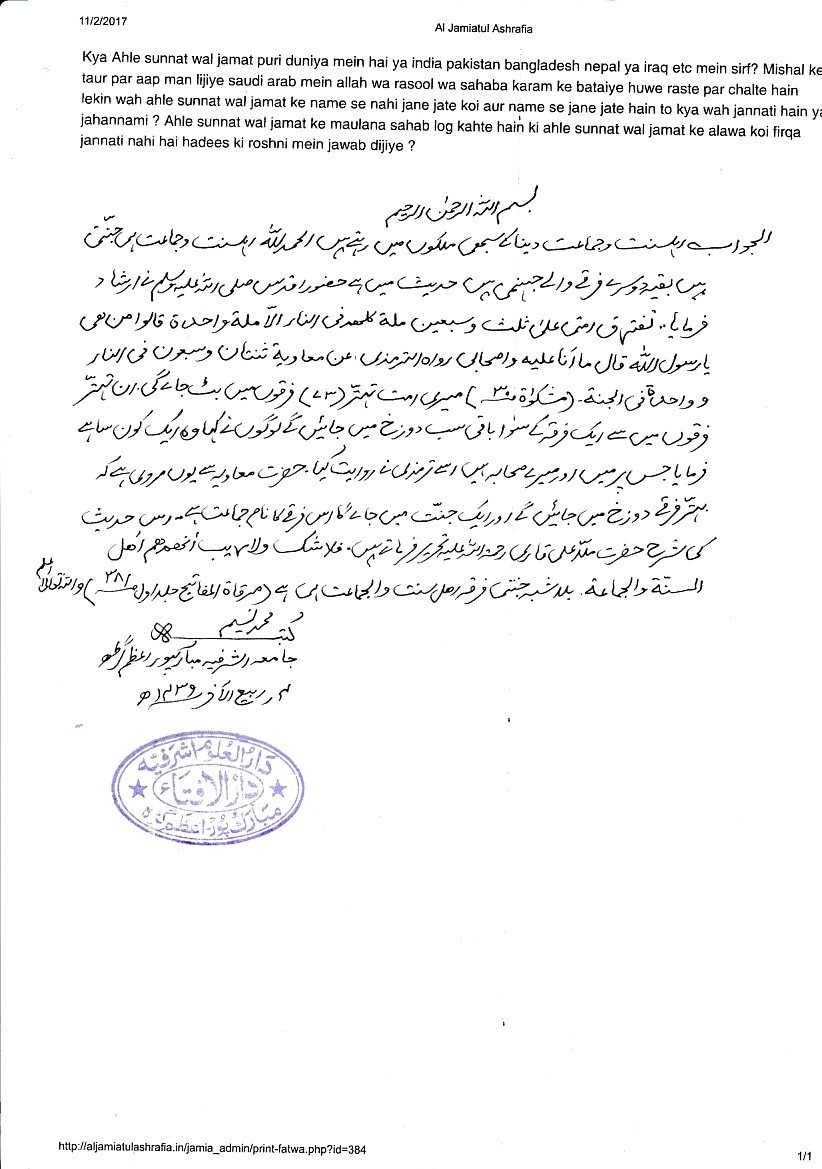 11/2/2017
Al Jamiatul Ashrafia
Kya Ahle sunnat wal jamat puri duniya mein hai ya india pakistan bangladesh nepal ya iraq etc mein sirf? Mishal ke
taur par aap man lijiye saudi arab mein allah wa rasool wa sahaba karam ke bataiye huwe raste par chalte hain
lekin wah ahle sunnat wal jamat ke name se nahi jane jate koi aur name se jane jate hain to kya wah jannati hain ya
jahannami ? Ahle sunnat wal jamat ke maulana sahab log kahte hain ki ahle sunnat wal jamat ke alawa koi firqa
jannati nahi hai hadees ki roshni mein jawab dijiye ?
بسم اللہ الرحمٰن الرحیم
الجواب اہلسنت وجماعت دینا کے سبھی ملکوں میں رہتے ہیں الحمد للہ اہلسنت وجماعت ہی جنتی
ہیں بقیہ دوسرے فرقے والے جہنمی ہیں حدیث میں ہے حضور اقدس صلی اللہ علیہ وسلم نے ارشاد
فرمایا۔ تفترق امتی علیٰ ثلث وسبعین ملة کلھم فی النار الّا ملة واحدة قالوا من ھی
یا رسول اللہ قال ما أنا علیه واصحابی رواہ الترمذی عن معاویة ثنتان وسبعون فی النار
و واحدة فی الجنة۔ (مشکوٰۃ ص۳۰) میری امت تہتر (۷۳) فرقوں میں بٹ جائے گی۔ ان تہتر
فرقوں میں سے ایک فرقہ کے سوا باقی سب دوزخ میں جائیں گے لوگوں نے کہا وہ ایک کون سا ہے
فرمایا جس پر میں اور میرے صحابہ ہیں اسے ترمذی نے روایت کیا۔ حضرت معاویہ سے یوں مروی ہے کہ
بہتر فرقے دوزخ میں جائیں گے اور ایک جنت میں جائے گا اس فرقے کا نام جماعت ہے۔ اس حدیث
کی شرح حضرت ملا علی قاری رحمۃ اللہ علیہ تحریر فرماتے ہیں۔ فلا شک ولا ریب أنھم ھم أھل
السنّة والجماعة۔ بلا شبہ جنتی فرقہ اھل سنت والجماعت ہی ہے (مرقاة المفاتیح جلد اول ص۳۸۱) واللہ تعالیٰ اعلم
کتبہ محمد نسیم
جامعہ اشرفیہ مبارکپور اعظم گڑھ
ربیع الآخر ۱۴۳۹ھ
دار العلوم اشرفیہ
دار الافتاء
مبارک پور اعظم گڑھ
http://aljamiatulashrafia.in/jamia_admin/print-fatwa.php?id=384
1/1